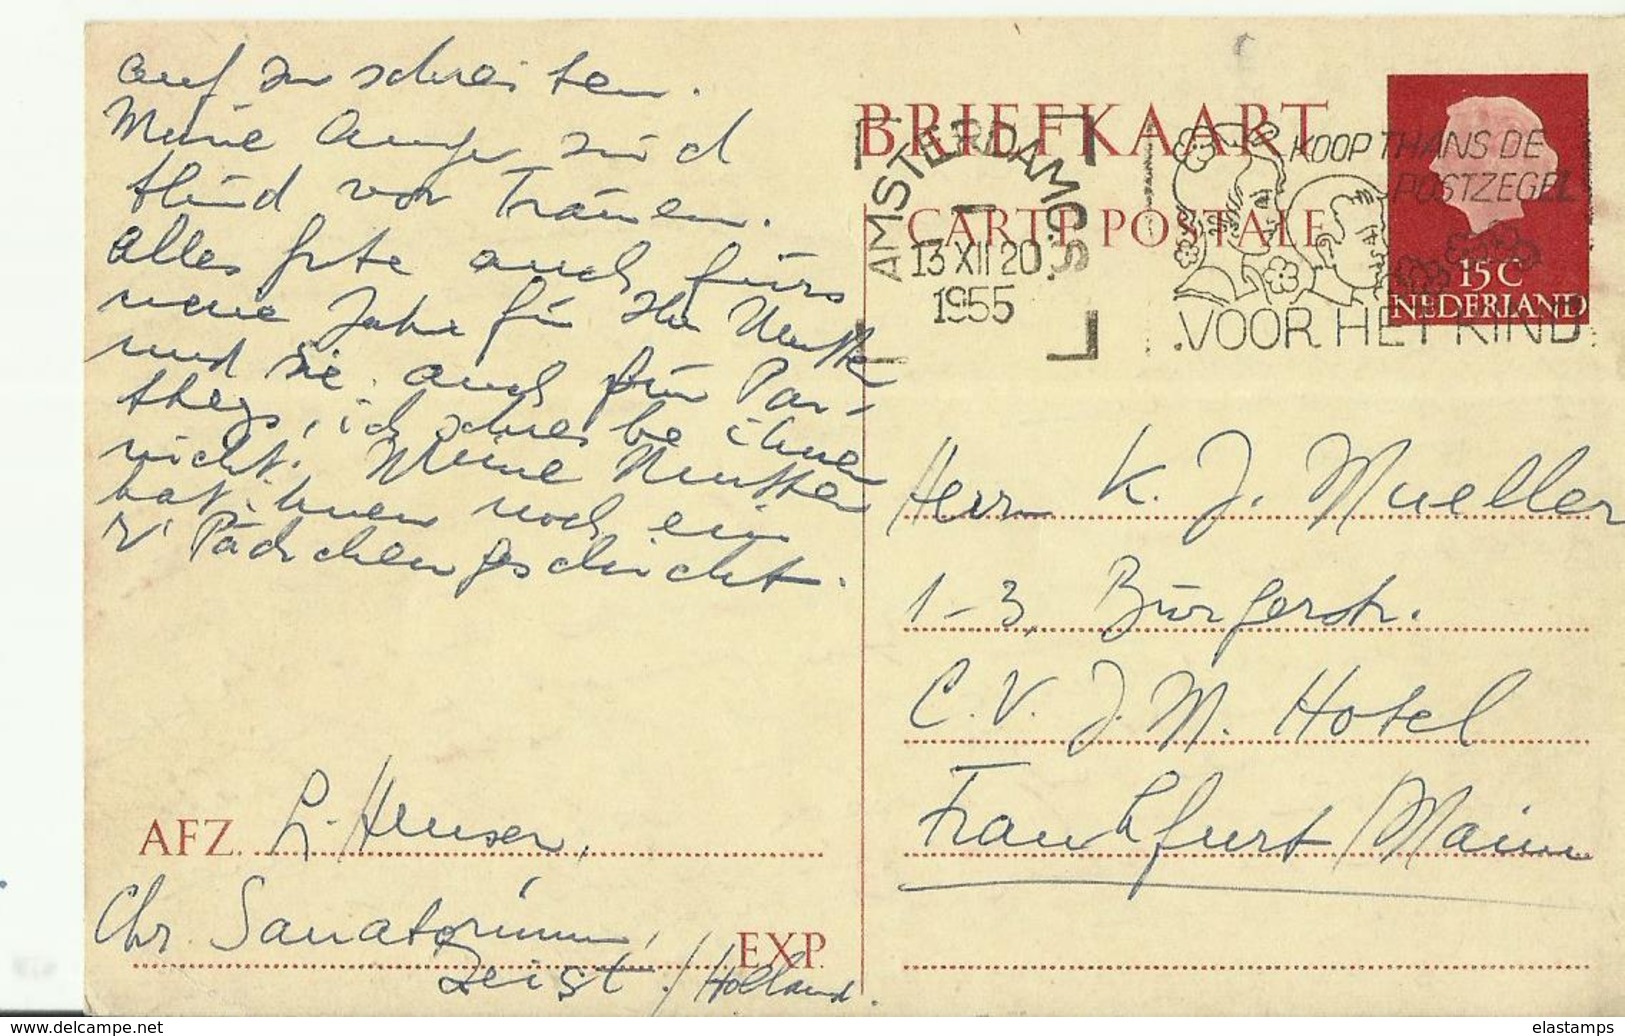 auf zu schreiben.
Meine Augen sind
blind vor Tränen.
Alles gute auch fürs
neue Jahr für Ihre Mutter
und Sie. auch für
ich schreibe ihnen
nicht. Meine Mutter
hat ihnen noch ein
Päckchen geschickt.
AFZ. L. Heuser,
Chr. Sanatorium,
EXP.
Zeist / Holland.
BRIEFKAART
CARTE POSTALE
AMSTERDAM C.S.
13 XII 20
1955
KOOP THANS DE
POSTZEGEL
VOOR HET KIND
15 C
NEDERLAND
Herr K. J. Mueller
1-3, Bürgerstr.
C. V. J. M. Hotel
Frankfurt / Main
www.delcampe.net
elastamps